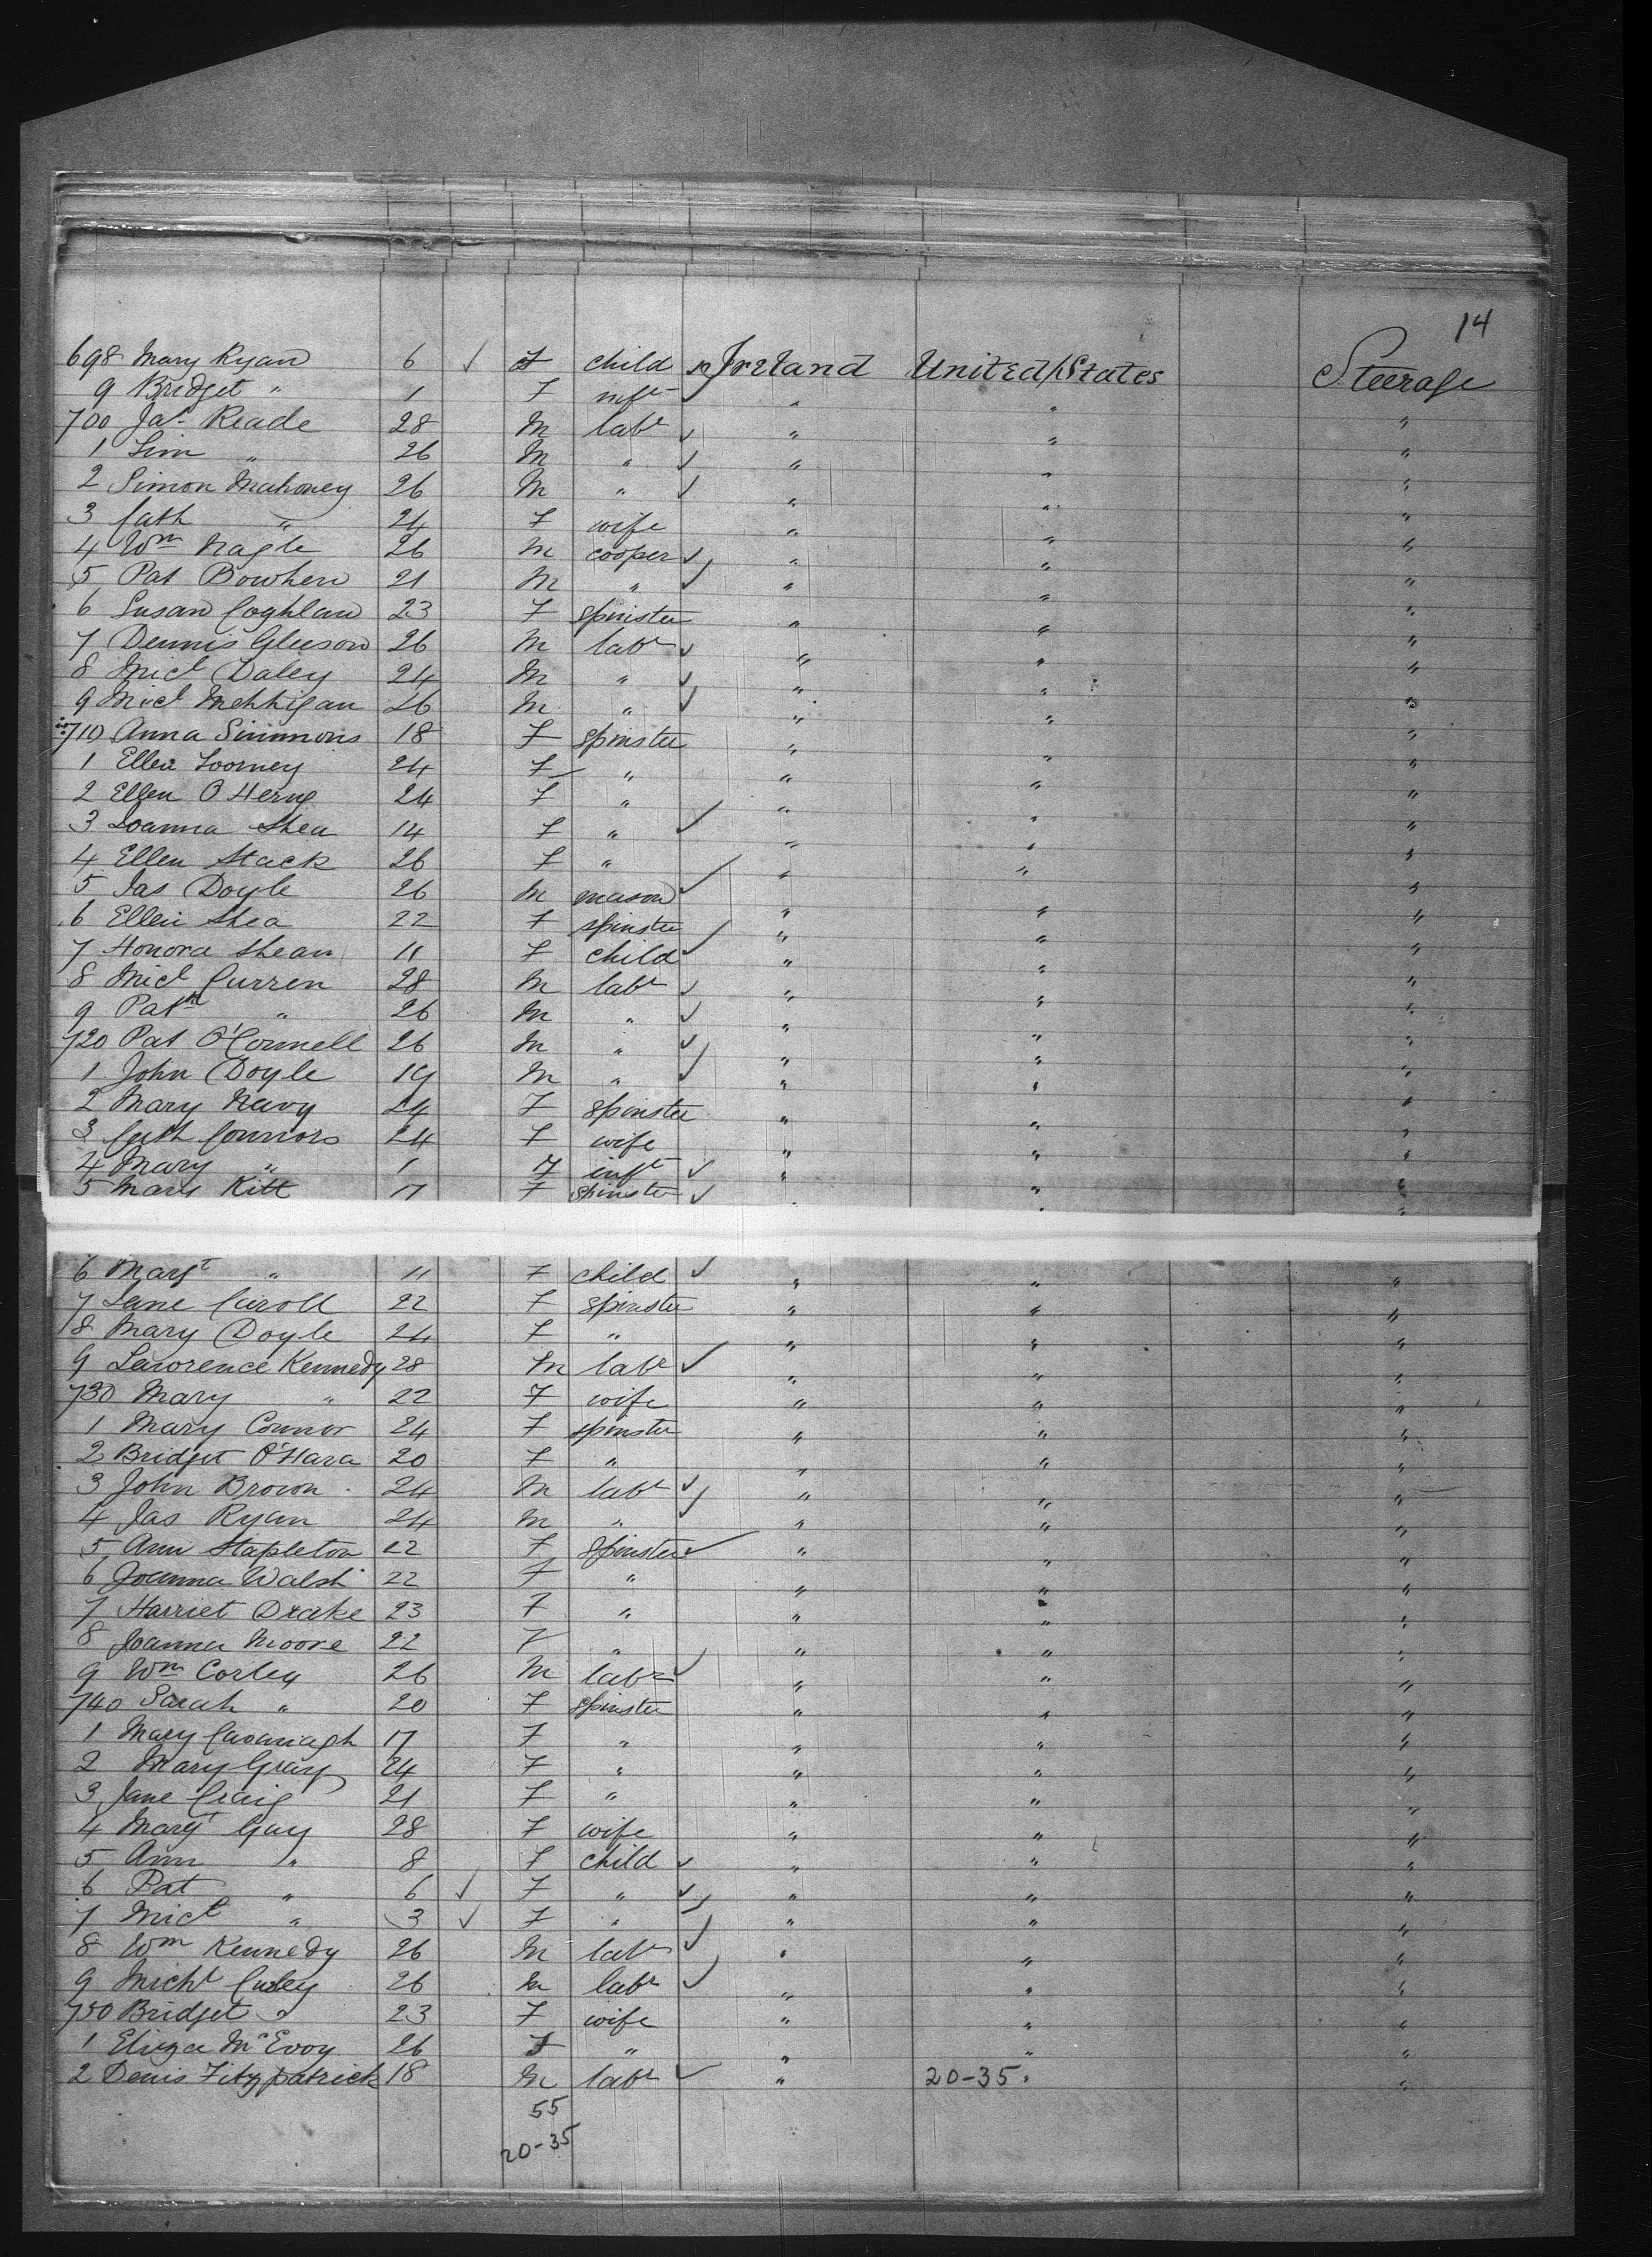 14
698 Mary Ryan 6 ✓ F child Ireland United States Steerage
9 Bridget " 1 F inft ✓ " " "
700 Jas Reade 28 M labr ✓ " " "
1 Tim " 26 M " ✓ " " "
2 Simon Mahoney 26 M " ✓ " " "
3 Cath " 24 F wife " " "
4 Wm Nagle 26 M cooper ✓ " " "
5 Pat Bowhen 21 M " ✓ " " "
6 Susan Coghlan 23 F spinster " " "
7 Dennis Gleeson 26 M labr ✓ " " "
8 Micl Daley 24 M " ✓ " " "
9 Micl Mehhigan 26 M " ✓ " " "
710 Anna Simmons 18 F spinster " " "
1 Ellen Toomey 24 F " " " "
2 Ellen O'Herne 24 F " " " "
3 Joanna Shea 14 F " ✓ " " "
4 Ellen Stack 26 F " " " "
5 Jas Doyle 26 M mason ✓ " " "
6 Ellen Shea 22 F spinster " " "
7 Honora Shean 11 F child ✓ " " "
8 Micl Curren 28 M labr ✓ " " "
9 Patk " 26 M " ✓ " " "
720 Pat O'Connell 26 M " ✓ " " "
1 John Doyle 19 M " ✓ " " "
2 Mary Navy 24 F spinster " " "
3 Cath Connors 24 F wife " " "
4 Mary " 1 F inft ✓ " " "
5 Mary Kitt 17 F spinster ✓ " " "
6 Margt " 11 F child ✓ " " "
7 Jane Caroll 22 F spinster " " "
8 Mary Doyle 24 F " " " "
9 Lawrence Kennedy 28 M labr ✓ " " "
730 Mary " 22 F wife " " "
1 Mary Connor 24 F spinster " " "
2 Bridget O'Hara 20 F " " " "
3 John Brown 24 M labr ✓ " " "
4 Jas Ryan 24 M " ✓ " " "
5 Ann Stapleton 22 F spinster ✓ " " "
6 Joanna Walsh 22 F " " " "
7 Harriet Drake 23 F " " " "
8 Joanna Moore 22 F " " " "
9 Wm Corley 26 M labr ✓ " " "
740 Sarah " 20 F spinster " " "
1 Mary Cavanagh 17 F " " " "
2 Mary Gray 24 F " " " "
3 Jane Craig 21 F " " " "
4 Margt Guy 28 F wife " " "
5 Ann " 8 F child ✓ " " "
6 Pat " 6 ✓ F " ✓ " " "
7 Micl " 3 ✓ F " ✓ " " "
8 Wm Kennedy 26 M labr ✓ " " "
9 Michl 26 M labr ✓ " " "
750 Bridget " 23 F wife " " "
1 Eliza McEvoy 26 F " " " "
2 Denis Fitzpatrick 18 M labr ✓ " 20-35 "
55
20-35